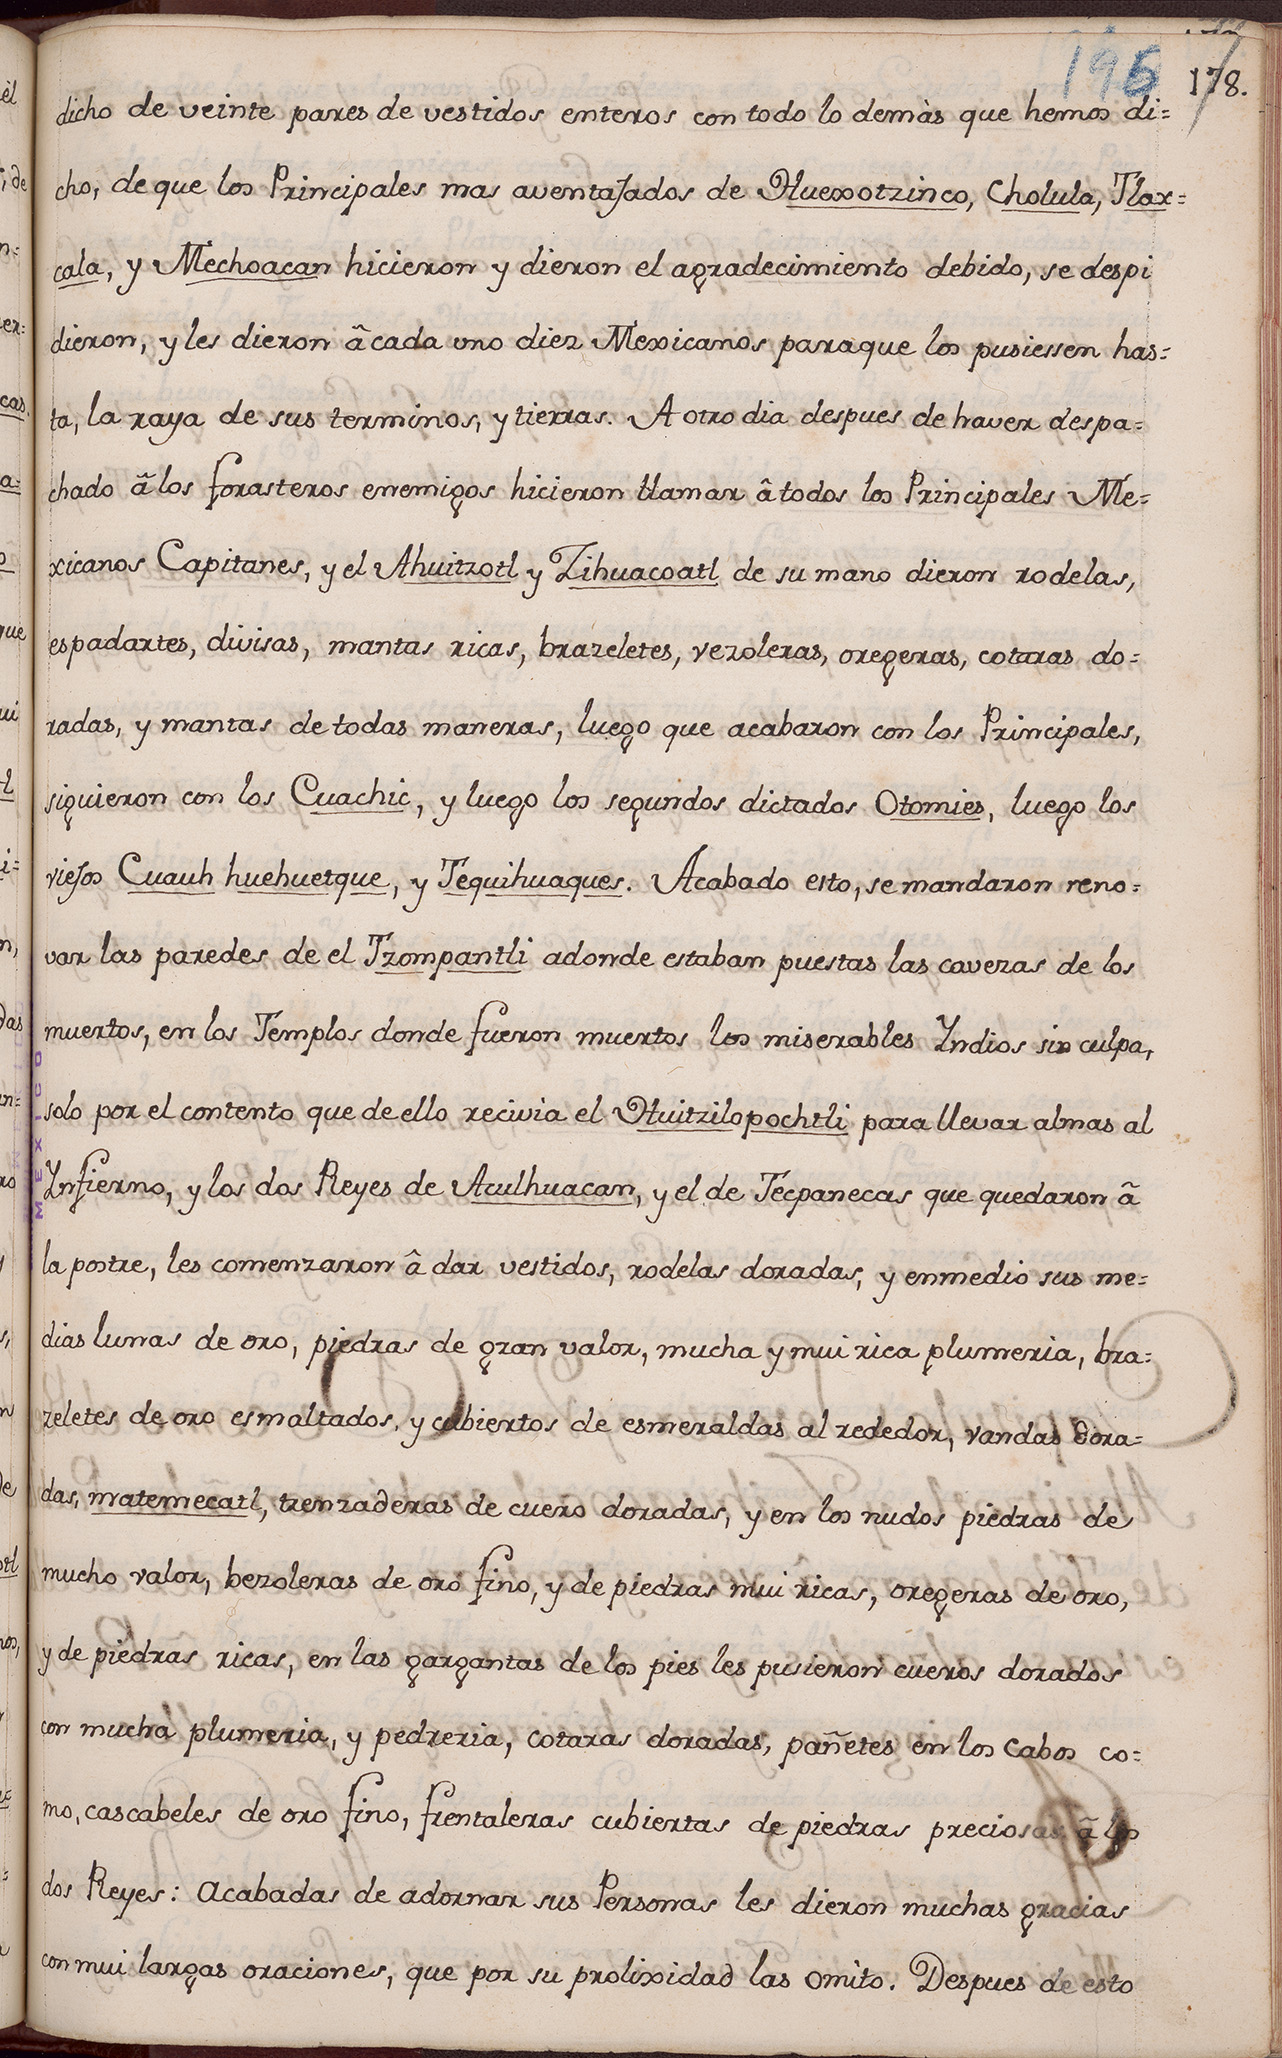 195 178.
dicho de veinte pares de vestidos enteros con todo lo demàs que hemos di=
cho, de que los Principales mas aventajados de Huexotzinco, Cholula, Tlax=
cala, y Mechoacan hicieron y dieron el agradecimiento debido, se despi
dieron, y les dieron â cada uno diez Mexicanos paraque los pusiessen has=
ta, la raya de sus terminos, y tierras. A otro dia despues de haver despa=
chado â los forasteros enemigos hicieron llamar â todos los Principales Me=
xicanos Capitanes, y el Ahuitzotl y Zihuacoatl de su mano dieron rodelas,
espadartes, divisas, mantas ricas, brazeletes, vezoleras, oregeras, cotaras do=
radas, y mantas de todas maneras, luego que acabaron con los Principales,
siguieron con los Cuachic, y luego los segundos dictados Otomies, luego los
viejos Cuauh huehuetque, y Tequihuaques. Acabado esto, se mandaron reno=
var las paredes de el Tzompantli adonde estaban puestas las cavezas de los
muertos, en los Templos donde fueron muertos los miserables Yndios sin culpa,
solo por el contento que de ello recivia el Huitzilopochtli para llevar almas al
Ynfierno, y los dos Reyes de Aculhuacan, y el de Tecpanecas que quedaron â
la postre, les comenzaron â dar vestidos, rodelas doradas, y enmedio sus me=
dias lunas de oro, piedras de gran valor, mucha y mui rica plumeria, bra=
zeletes de oro esmaltados, y cubiertos de esmeraldas al rededor, vandas dora=
das, matemecatl, trenzaderas de cuero doradas, y en los nudos piedras de
mucho valor, bezoleras de oro fino, y de piedras mui ricas, oregeras de oro,
y de piedras ricas, en las gargantas de los pies les pusieron cueros dorados
con mucha plumeria, y pedreria, cotaras doradas, pañetes en los cabos co=
mo, cascabeles de oro fino, frentaleras cubiertas de piedras preciosas â los
dos Reyes: acabadas de adornar sus Personas les dieron muchas gracias
con mui largas oraciones, que por su prolixidad las omito. Despues de esto
MEXICO